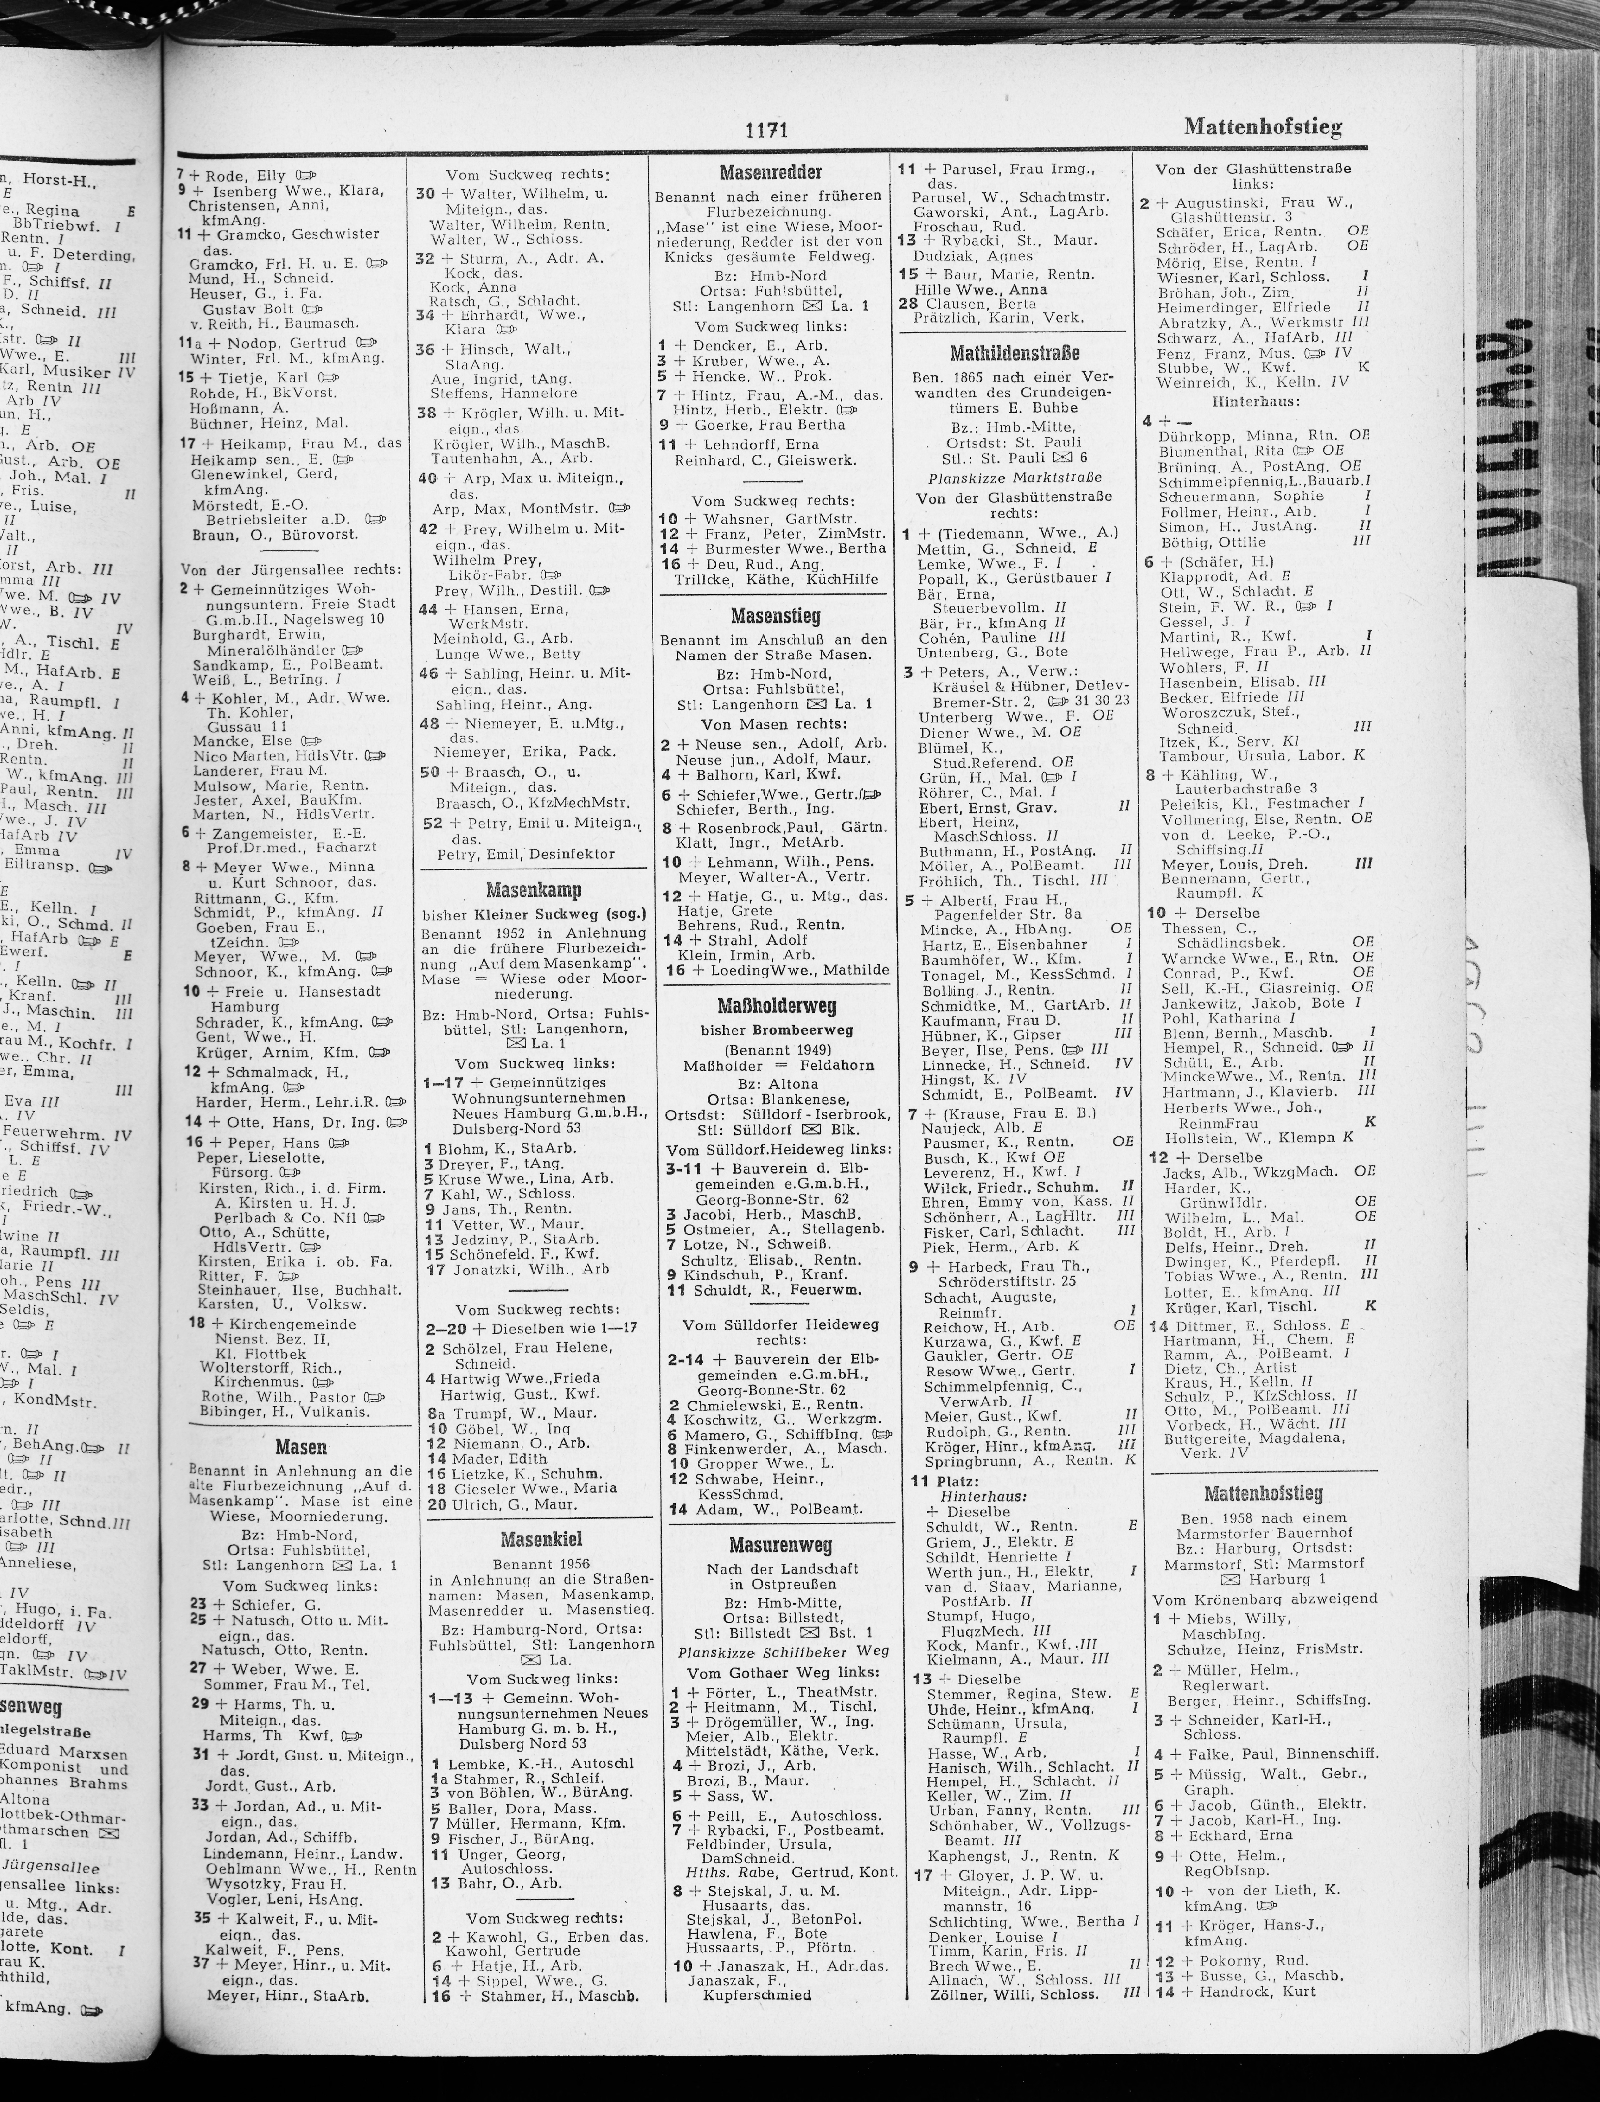 1171
Mattenhofstieg
n, Horst-H.,
E
e., Regina E
BbTriebwf. I
Rentn. I
u. F. Deterding,
F., Schiffsf. II
D. II
a, Schneid. III
Wwe., E. III
Karl, Musiker IV
tz, Rentn III
Arb IV
un. H.,
g. E
n., Arb. OE
Gust., Arb. OE
Joh., Mal. I
, Fris. II
e., Luise,
II
Walt.,
II
orst, Arb. III
mma III
we. M. IV
Wwe., B. IV
W. IV
, A., Tischl. E
Hdlr. E
M., HafArb. E
e., A. I
na, Raumpfl. I
we., H. I
Anni, kfmAng. II
., Dreh. II
Rentn. II
W., kfmAng. III
Paul, Rentn. III
., Masch. III
we., J. IV
HafArb IV
, Emma IV
Eiltransp.
E
E., Kelln. I
ki, O., Schmd. II
, HafArb E
Ewerf. E
. I
., Kelln. II
, Kranf. III
J., Maschin. III
e., M. I
rau M., Kochfr. I
we., Chr. II
er, Emma,
III
Eva III
. IV
Feuerwehrm. IV
., Schiffsf. IV
L. E
e E
riedrich
k, Friedr.-W.,
I
lwine II
a, Raumpfl. III
Marie II
oh., Pens III
MaschSchl. IV
Seldis,
E
r. I
W., Mal. I
I
, KondMstr.
n. II
, BehAng. II
II
lt. II
edr.,
III
arlotte, Schnd. III
isabeth
III
Anneliese,
IV
, Hugo, i. Fa.
ddeldorff IV
eldorff,
gn. IV
TaklMstr. IV
senweg
hlegelstraße
Eduard Marxsen
Komponist und
ohannes Brahms
Altona
lottbek-Othmar-
thmarschen
fl. 1
Jürgensallee
gensallee links:
u. Mtg., Adr.
lde, das.
garete
lotte, Kont. I
rau K.
hthild,
kfmAng.
7 + Rode, Elly
9 + Isenberg Wwe., Klara,
Christensen, Anni,
kfmAng.
11 + Gramcko, Geschwister
das.
Gramcko, Frl. H. u. E.
Mund, H., Schneid.
Heuser, G., i. Fa.
Gustav Bolt
v. Reith, H., Baumasch.
11a + Nodop, Gertrud
Winter, Frl. M., kfmAng.
15 + Tietje, Karl
Rohde, H., BkVorst.
Hoßmann, A.
Büchner, Heinz, Mal.
17 + Heikamp, Frau M., das
Heikamp sen., E.
Glenewinkel, Gerd,
kfmAng.
Mörstedt, E.-O.
Betriebsleiter a.D.
Braun, O., Bürovorst.
Von der Jürgensallee rechts:
2 + Gemeinnütziges Woh-
nungsuntern. Freie Stadt
G.m.b.H., Nagelsweg 10
Burghardt, Erwin,
Mineralölhändler
Sandkamp, E., PolBeamt.
Weiß, L., BetrIng. I
4 + Kohler, M., Adr. Wwe.
Th. Kohler,
Gussau 11
Mancke, Else
Nico Marten, HdlsVtr.
Landerer, Frau M.
Mulsow, Marie, Rentn.
Jester, Axel, BauKfm.
Marten, N., HdlsVertr.
6 + Zangemeister, E.-E.
Prof.Dr.med., Facharzt
8 + Meyer Wwe., Minna
u. Kurt Schnoor, das.
Rittmann, G., Kfm.
Schmidt, P., kfmAng. II
Goeben, Frau E.,
tZeichn.
Meyer, Wwe., M.
Schnoor, K., kfmAng.
10 + Freie u. Hansestadt
Hamburg
Schrader, K., kfmAng.
Gent, Wwe., H.
Krüger, Arnim, Kfm.
12 + Schmalmack, H.,
kfmAng.
Harder, Herm., Lehr.i.R.
14 + Otte, Hans, Dr. Ing.
16 + Peper, Hans
Peper, Lieselotte,
Fürsorg.
Kirsten, Rich., i. d. Firm.
A. Kirsten u. H. J.
Perlbach & Co. Nfl
Otto, A., Schütte,
HdlsVertr.
Kirsten, Erika i. ob. Fa.
Ritter, F.
Steinhauer, Ilse, Buchhalt.
Karsten, U., Volksw.
18 + Kirchengemeinde
Nienst. Bez. II,
Kl. Flottbek
Wolterstorff, Rich.,
Kirchenmus.
Rothe, Wilh., Pastor
Bibinger, H., Vulkanis.
Masen
Benannt in Anlehnung an die
alte Flurbezeichnung „Auf d.
Masenkamp“. Mase ist eine
Wiese, Moorniederung.
Bz: Hmb-Nord,
Ortsa: Fuhlsbüttel,
Stl: Langenhorn La. 1
Vom Suckweg links:
23 + Schiefer, G.
25 + Natusch, Otto u. Mit-
eign., das.
Natusch, Otto, Rentn.
27 + Weber, Wwe. E.
Sommer, Frau M., Tel.
29 + Harms, Th. u.
Miteign., das.
Harms, Th Kwf.
31 + Jordt, Gust. u. Miteign.,
das.
Jordt, Gust., Arb.
33 + Jordan, Ad., u. Mit-
eign., das.
Jordan, Ad., Schiffb.
Lindemann, Heinr., Landw.
Oehlmann Wwe., H., Rentn
Wysotzky, Frau H.
Vogler, Leni, HsAng.
35 + Kalweit, F., u. Mit-
eign., das.
Kalweit, F., Pens.
37 + Meyer, Hinr., u. Mit-
eign., das.
Meyer, Hinr., StaArb.
Vom Suckweg rechts:
30 + Walter, Wilhelm, u.
Miteign., das.
Walter, Wilhelm, Rentn.
Walter, W., Schloss.
32 + Sturm, A., Adr. A.
Kock, das.
Kock, Anna
Ratsch, G., Schlacht.
34 + Ehrhardt, Wwe.,
Klara
36 + Hinsch, Walt.,
StaAng.
Aue, Ingrid, tAng.
Steffens, Hannelore
38 + Krögler, Wilh. u. Mit-
eign., das
Krögler, Wilh., MaschB.
Tautenhahn, A., Arb.
40 + Arp, Max u. Miteign.,
das.
Arp, Max, MontMstr.
42 + Prey, Wilhelm u. Mit-
eign., das.
Wilhelm Prey,
Likör-Fabr.
Prey, Wilh., Destill.
44 + Hansen, Erna,
WerkMstr.
Meinhold, G., Arb.
Lunge Wwe., Betty
46 + Sahling, Heinr. u. Mit-
eign., das.
Sahling, Heinr., Ang.
48 + Niemeyer, E. u.Mtg.,
das.
Niemeyer, Erika, Pack.
50 + Braasch, O., u.
Miteign., das.
Braasch, O., KfzMechMstr.
52 + Petry, Emil u. Miteign.,
das.
Petry, Emil, Desinfektor
Masenkamp
bisher Kleiner Suckweg (sog.)
Benannt 1952 in Anlehnung
an die frühere Flurbezeich-
nung „Auf dem Masenkamp“.
Mase = Wiese oder Moor-
niederung.
Bz: Hmb-Nord, Ortsa: Fuhls-
büttel, Stl: Langenhorn,
La. 1
Vom Suckweg links:
1—17 + Gemeinnütziges
Wohnungsunternehmen
Neues Hamburg G.m.b.H.,
Dulsberg-Nord 53
1 Blohm, K., StaArb.
3 Dreyer, F., tAng.
5 Kruse Wwe., Lina, Arb.
7 Kahl, W., Schloss.
9 Jans, Th., Rentn.
11 Vetter, W., Maur.
13 Jedziny, P., StaArb.
15 Schönefeld, F., Kwf.
17 Jonatzki, Wilh., Arb
Vom Suckweg rechts:
2—20 + Dieselben wie 1—17
2 Schölzel, Frau Helene,
Schneid.
4 Hartwig Wwe.,Frieda
Hartwig, Gust., Kwf.
8a Trumpf, W., Maur.
10 Göbel, W., Ing
12 Niemann, O., Arb.
14 Mader, Edith
16 Lietzke, K., Schuhm.
18 Gieseler Wwe., Maria
20 Ulrich, G., Maur.
Masenkiel
Benannt 1956
in Anlehnung an die Straßen-
namen: Masen, Masenkamp,
Masenredder u. Masenstieg.
Bz: Hamburg-Nord, Ortsa:
Fuhlsbüttel, Stl: Langenhorn
La.
Vom Suckweg links:
1—13 + Gemeinn. Woh-
nungsunternehmen Neues
Hamburg G. m. b. H.,
Dulsberg Nord 53
1 Lembke, K.-H., Autoschl
1a Stahmer, R., Schleif.
3 von Böhlen, W., BürAng.
5 Baller, Dora, Mass.
7 Müller, Hermann, Kfm.
9 Fischer, J., BürAng.
11 Unger, Georg,
Autoschloss.
13 Bahr, O., Arb.
Vom Suckweg rechts:
2 + Kawohl, G., Erben das.
Kawohl, Gertrude
6 + Hatje, H., Arb.
14 + Sippel, Wwe., G.
16 + Stahmer, H., Maschb.
Masenredder
Benannt nach einer früheren
Flurbezeichnung.
„Mase“ ist eine Wiese, Moor-
niederung, Redder ist der von
Knicks gesäumte Feldweg.
Bz: Hmb-Nord
Ortsa: Fuhlsbüttel,
Stl: Langenhorn La. 1
Vom Suckweg links:
1 + Dencker, E., Arb.
3 + Kruber, Wwe., A.
5 + Hencke, W., Prok.
7 + Hintz, Frau, A.-M., das.
Hintz, Herb., Elektr.
9 + Goerke, Frau Bertha
11 + Lehndorff, Erna
Reinhard, C., Gleiswerk.
Vom Suckweg rechts:
10 + Wahsner, GartMstr.
12 + Franz, Peter, ZimMstr.
14 + Burmester Wwe., Bertha
16 + Deu, Rud., Ang.
Trillcke, Käthe, KüchHilfe
Masenstieg
Benannt im Anschluß an den
Namen der Straße Masen.
Bz: Hmb-Nord,
Ortsa: Fuhlsbüttel,
Stl: Langenhorn La. 1
Von Masen rechts:
2 + Neuse sen., Adolf, Arb.
Neuse jun., Adolf, Maur.
4 + Balhorn, Karl, Kwf.
6 + Schiefer,Wwe., Gertr.
Schiefer, Berth., Ing.
8 + Rosenbrock,Paul, Gärtn.
Klatt, Ingr., MetArb.
10 + Lehmann, Wilh., Pens.
Meyer, Walter-A., Vertr.
12 + Hatje, G., u. Mtg., das.
Hatje, Grete
Behrens, Rud., Rentn.
14 + Strahl, Adolf
Klein, Irmin, Arb.
16 + LoedingWwe., Mathilde
Maßholderweg
bisher Brombeerweg
(Benannt 1949)
Maßholder = Feldahorn
Bz: Altona
Ortsa: Blankenese,
Ortsdst: Sülldorf-Iserbrook,
Stl: Sülldorf Blk.
Vom Sülldorf.Heideweg links:
3-11 + Bauverein d. Elb-
gemeinden e.G.m.b.H.,
Georg-Bonne-Str. 62
3 Jacobi, Herb., MaschB.
5 Ostmeier, A., Stellagenb.
7 Lotze, N., Schweiß.
Schultz, Elisab., Rentn.
9 Kindschuh, P., Kranf.
11 Schuldt, R., Feuerwm.
Vom Sülldorfer Heideweg
rechts:
2-14 + Bauverein der Elb-
gemeinden e.G.m.bH.,
Georg-Bonne-Str. 62
2 Chmielewski, E., Rentn.
4 Koschwitz, G., Werkzgm.
6 Mamero, G., SchiffbIng.
8 Finkenwerder, A., Masch.
10 Gropper Wwe., L.
12 Schwabe, Heinr.,
KessSchmd.
14 Adam, W., PolBeamt.
Masurenweg
Nach der Landschaft
in Ostpreußen
Bz: Hmb-Mitte,
Ortsa: Billstedt,
Stl: Billstedt Bst. 1
Planskizze Schiffbeker Weg
Vom Gothaer Weg links:
1 + Förter, L., TheatMstr.
2 + Heitmann, M., Tischl.
3 + Drögemüller, W., Ing.
Meier, Alb., Elektr.
Mittelstädt, Käthe, Verk.
4 + Brozi, J., Arb.
Brozi, B., Maur.
5 + Sass, W.
6 + Peill, E., Autoschloss.
7 + Rybacki, F., Postbeamt.
Feldbinder, Ursula,
DamSchneid.
Htths. Rabe, Gertrud, Kont.
8 + Stejskal, J. u. M.
Husaarts, das.
Stejskal, J., BetonPol.
Hawlena, F., Bote
Hussaarts, P., Pförtn.
10 + Janaszak, H., Adr.das.
Janaszak, F.,
Kupferschmied
11 + Parusel, Frau Irmg.,
das.
Parusel, W., Schachtmstr.
Gaworski, Ant., LagArb.
Froschau, Rud.
13 + Rybacki, St., Maur.
Dudziak, Agnes
15 + Baur, Marie, Rentn.
Hille Wwe., Anna
28 Clausen, Berta
Prätzlich, Karin, Verk.
Mathildenstraße
Ben. 1865 nach einer Ver-
wandten des Grundeigen-
tümers E. Buhbe
Bz.: Hmb.-Mitte,
Ortsdst: St. Pauli
Stl.: St. Pauli 6
Planskizze Marktstraße
Von der Glashüttenstraße
rechts:
1 + (Tiedemann, Wwe., A.)
Mettin, G., Schneid. E
Lemke, Wwe., F. I
Popall, K., Gerüstbauer I
Bär, Erna,
Steuerbevollm. II
Bär, Fr., kfmAng II
Cohén, Pauline III
Untenberg, G., Bote
3 + Peters, A., Verw.:
Kräusel & Hübner, Detlev-
Bremer-Str. 2, 31 30 23
Unterberg Wwe., F. OE
Diener Wwe., M. OE
Blümel, K.,
Stud.Referend. OE
Grün, H., Mal. I
Röhrer, C., Mal. I
Ebert, Ernst, Grav. II
Ebert, Heinz,
MaschSchloss. II
Buthmann, H., PostAng. II
Möller, A., PolBeamt. III
Fröhlich, Th., Tischl. III
5 + Alberti, Frau H.,
Pagenfelder Str. 8a
Mincke, A., HbAng. OE
Hartz, E., Eisenbahner I
Baumhöfer, W., Kfm. I
Tonagel, M., KessSchmd. I
Bolling, J., Rentn. II
Schmidtke, M., GartArb. II
Kaufmann, Frau D. II
Hübner, K., Gipser III
Beyer, Ilse, Pens. III
Linnecke, H., Schneid. IV
Hingst, K. IV
Schmidt, E., PolBeamt. IV
7 + (Krause, Frau E. B.)
Naujeck, Alb. E
Pausmer, K., Rentn. OE
Busch, K., Kwf OE
Leverenz, H., Kwf. I
Wilck, Friedr., Schuhm. II
Ehren, Emmy von, Kass. II
Schönherr, A., LagHltr. III
Fisker, Carl, Schlacht. III
Piek, Herm., Arb. K
9 + Harbeck, Frau Th.,
Schröderstiftstr. 25
Schacht, Auguste,
Reinmfr. I
Reichow, H., Arb. OE
Kurzawa, G., Kwf. E
Gaukler, Gertr. OE
Resow Wwe., Gertr. I
Schimmelpfennig, C.,
VerwArb. II
Meier, Gust., Kwf. II
Rudolph, G., Rentn. III
Kröger, Hinr., kfmAng. III
Springbrunn, A., Rentn. K
11 Platz:
Hinterhaus:
+ Dieselbe
Schuldt, W., Rentn. E
Griem, J., Elektr. E
Schildt, Henriette I
Werth jun., H., Elektr. I
van d. Staay, Marianne,
PostfArb. II
Stumpf, Hugo,
FlugzMech. III
Kock, Manfr., Kwf. III
Kielmann, A., Maur. III
13 + Dieselbe
Stemmer, Regina, Stew. E
Uhde, Heinr., kfmAng. I
Schümann, Ursula,
Raumpfl. E
Hasse, W., Arb. I
Hanisch, Wilh., Schlacht. II
Hempel, H., Schlacht. II
Keller, W., Zim. II
Urban, Fanny, Rentn. III
Schönhaber, W., Vollzugs-
Beamt. III
Kaphengst, J., Rentn. K
17 + Gloyer, J. P. W. u.
Miteign., Adr. Lipp-
mannstr. 16
Schlichting, Wwe., Bertha I
Denker, Louise I
Timm, Karin, Fris. II
Brech Wwe., E. II
Allnach, W., Schloss. III
Zöllner, Willi, Schloss. III
Von der Glashüttenstraße
links:
2 + Augustinski, Frau W.,
Glashüttenstr. 3
Schäfer, Erica, Rentn. OE
Schröder, H., LagArb. OE
Mörig, Else, Rentn. I
Wiesner, Karl, Schloss. I
Bröhan, Joh., Zim. II
Heimerdinger, Elfriede II
Abratzky, A., Werkmstr III
Schwarz, A., HafArb. III
Fenz, Franz, Mus. IV
Stubbe, W., Kwf. K
Weinreich, K., Kelln. IV
Hinterhaus:
4 + —
Dührkopp, Minna, Rtn. OE
Blumenthal, Rita OE
Brüning, A., PostAng. OE
Schimmelpfennig,L.,Bauarb.I
Scheuermann, Sophie I
Follmer, Heinr., Arb. I
Simon, H., JustAng. II
Böthig, Ottilie III
6 + (Schäfer, H.)
Klapprodt, Ad. E
Ott, W., Schlacht. E
Stein, F. W. R., I
Gessel, J. I
Martini, R., Kwf. I
Hellwege, Frau P., Arb. II
Wohlers, F. II
Hasenbein, Elisab. III
Becker, Elfriede III
Woroszczuk, Stef.,
Schneid. III
Itzek, K., Serv. Kl
Tambour, Ursula, Labor. K
8 + Kähling, W.,
Lauterbachstraße 3
Peleikis, Kl., Festmacher I
Vollmering, Else, Rentn. OE
von d. Leeke, P.-O.,
Schiffsing.II
Meyer, Louis, Dreh. III
Bennemann, Gertr.,
Raumpfl. K
10 + Derselbe
Thessen, C.,
Schädlingsbek. OE
Warncke Wwe., E., Rtn. OE
Conrad, P., Kwf. OE
Sell, K.-H., Glasreinig. OE
Jankewitz, Jakob, Bote I
Pohl, Katharina I
Blenn, Bernh., Maschb. I
Hempel, R., Schneid. II
Schütt, E., Arb. II
MinckeWwe., M., Rentn. III
Hartmann, J., Klavierb. III
Herberts Wwe., Joh.,
ReinmFrau K
Hollstein, W., Klempn K
12 + Derselbe
Jacks, Alb., WkzgMach. OE
Harder, K.,
GrünwHdlr. OE
Wilhelm, L., Mal. OE
Boldt, H., Arb. I
Delfs, Heinr., Dreh. II
Dwinger, K., Pferdepfl. II
Tobias Wwe., A., Rentn. III
Lotter, E., kfmAng. III
Krüger, Karl, Tischl. K
14 Dittmer, E., Schloss. E
Hartmann, H., Chem. E
Ramm, A., PolBeamt. I
Dietz, Ch., Artist
Kraus, H., Kelln. II
Schulz, P., KfzSchloss. II
Otto, M., PolBeamt. III
Vorbeck, H., Wächt. III
Buttgereite, Magdalena,
Verk. IV
Mattenhofstieg
Ben. 1958 nach einem
Marmstorfer Bauernhof
Bz.: Harburg, Ortsdst:
Marmstorf, Stl: Marmstorf
Harburg 1
Vom Krönenbarg abzweigend
1 + Miebs, Willy,
MaschbIng.
Schulze, Heinz, FrisMstr.
2 + Müller, Helm.,
Reglerwart.
Berger, Heinr., SchiffsIng.
3 + Schneider, Karl-H.,
Schloss.
4 + Falke, Paul, Binnenschiff.
5 + Müssig, Walt., Gebr.,
Graph.
6 + Jacob, Günth., Elektr.
7 + Jacob, Karl-H., Ing.
8 + Eckhard, Erna
9 + Otte, Helm.,
RegObInsp.
10 + von der Lieth, K.
kfmAng.
11 + Kröger, Hans-J.,
kfmAng.
12 + Pokorny, Rud.
13 + Busse, G., Maschb.
14 + Handrock, Kurt